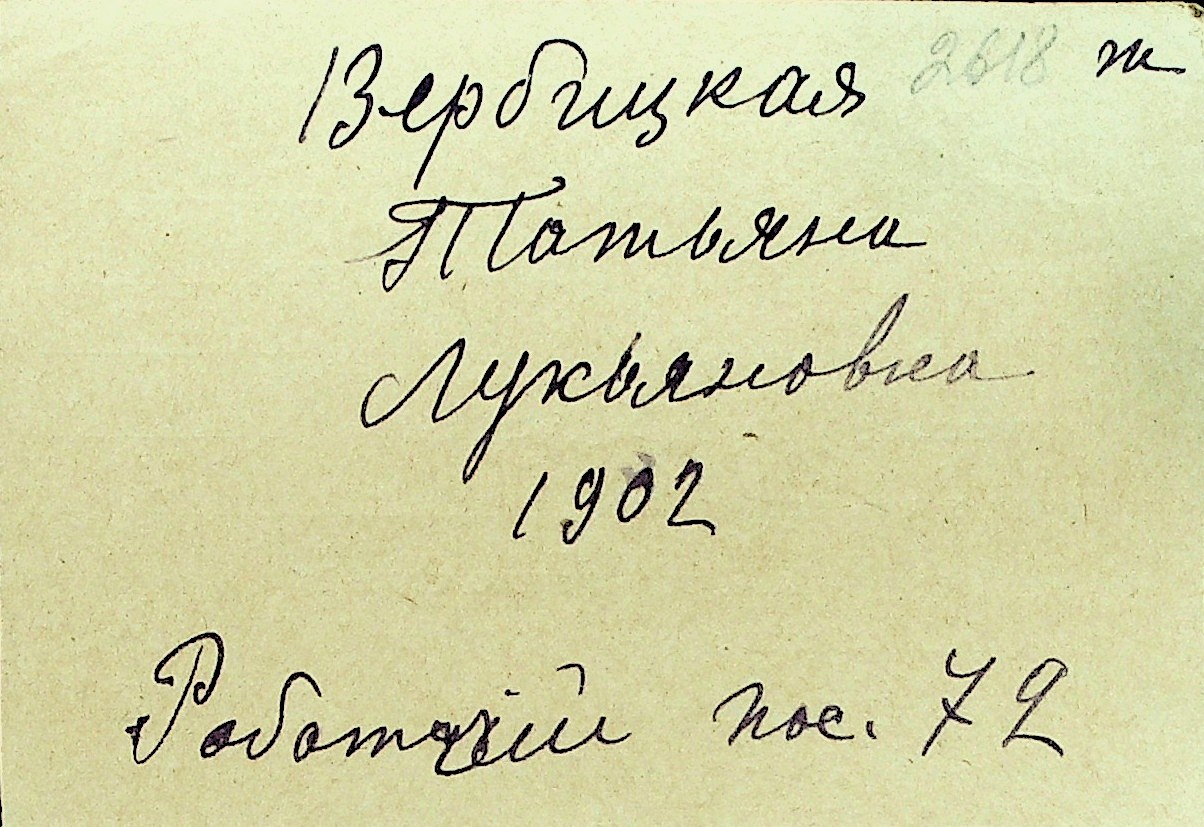 Вербицкая 2618 ж
Татьяна
Лукьяновна
1902
Работчій пос. 72